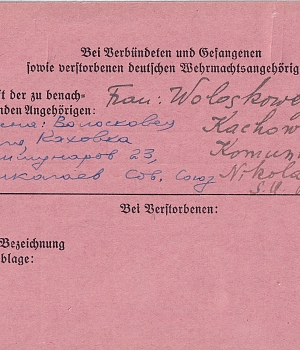 Bei Verbündeten und Gefangenen
sowie verstorbenen deutschen Wehrmachtsangehörig
ft der zu benach-
nden Angehörigen:
Frau: Woloskowe
Волосковец
Каховка
23,
Сов. Союз
Kachow
Komun
Nikola
Bei Verstorbenen:
Bezeichnung
blage: